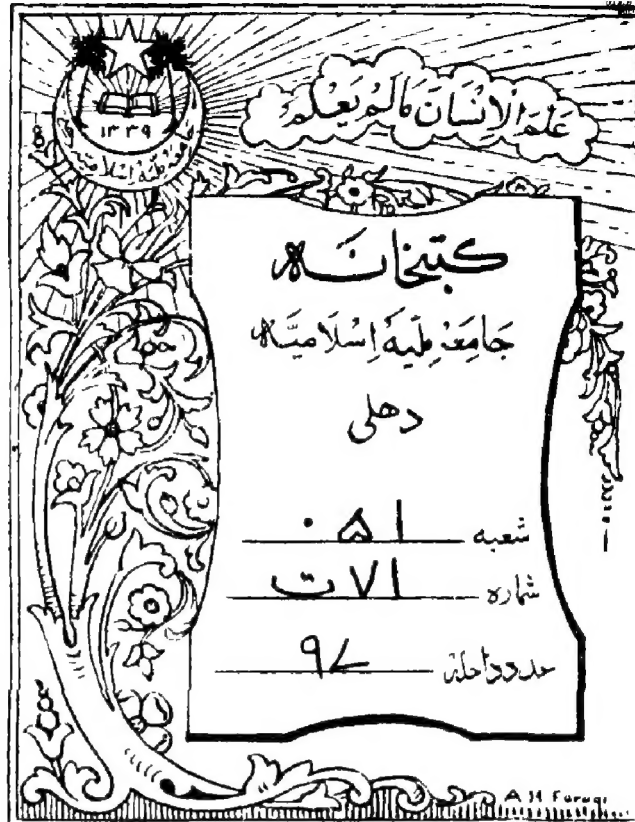 عَلَمَ الْاِنْسَانَ مَالَمْ يَعْلَمْ
۱۳۳۹
جامعه ملیه اسلامیه
کتبخانه
جَامِعَه مِلّیَه اِسْلَامیَّه
دهلی
شعبه ۰۵۱
شماره ۷۱ ت
عدد داخله ۹۷
A H Faruqi